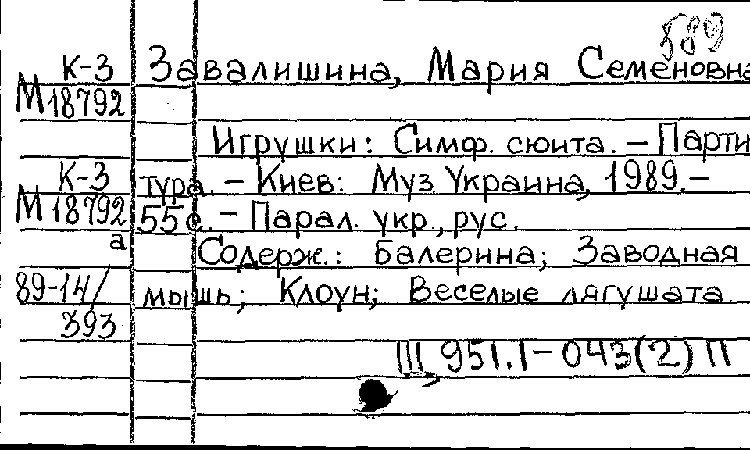 589
К-3 Завалишина, Мария Семеновна
М 18792
Игрушки: Симф. сюита. – Парти
К-3 тура. – Киев: Муз Украина, 1989. –
М 18792 55 с. – Парал. укр., рус.
а Содерж.: Балерина; Заводная
89-14/ мышь; Клоун; Веселые лягушата
393
III 951.1-043(2) П